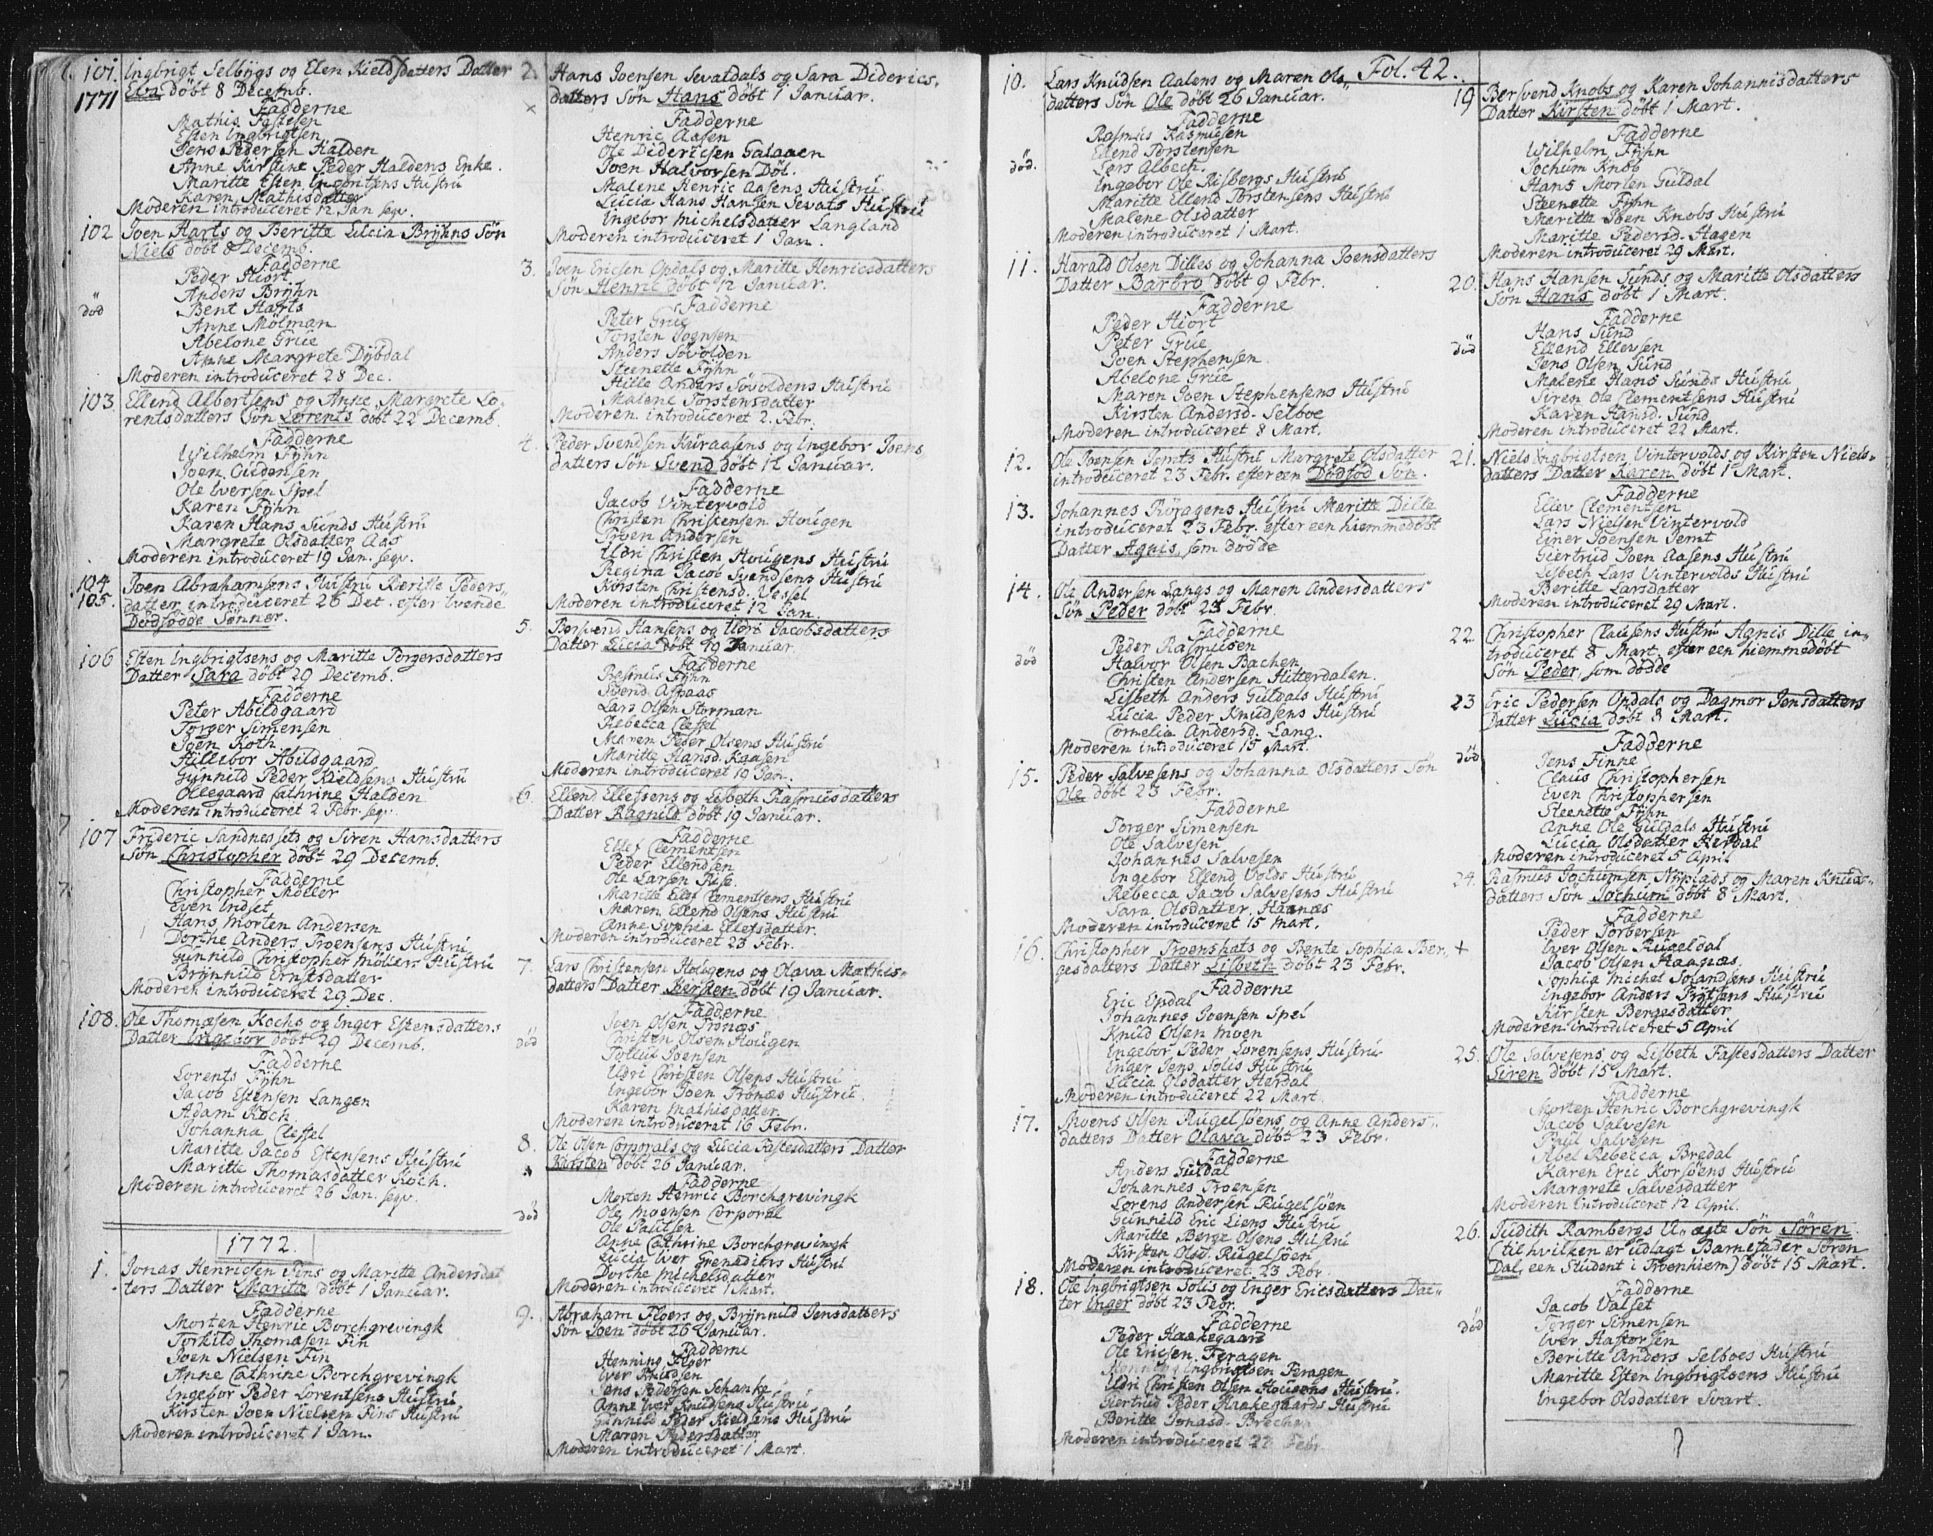 101.
1771
Ingbrigt Selbÿgs og Elen Kieldsdatters Datter
Elen döbt 8 Decemb.
Fadderne
Mathis Fastesen
Esten Ingbrigtsen
Jens Pedersen Halden
Anne Kirstine Peder Haldens Enke.
Maritte Esten Ingbritsens Hustrü
Karen Mathisdatter
Moderen introduceret 12 Jan seqv.
102
Joen Harts og Beritte Lucia Brÿhns Søn
Niels döbt 8 Decemb.
Fadderne
Peder Hiort
Anders Brÿhn
död
Bent Harts
Anne Mölman
Abelone Grüe
Anne Margrete Dÿbdal
Moderen introduceret 28 Dec.
103
Ellend Albertsens og Anne Margrete Lo-
rentsdatters Søn Lorents döbt 22 Decemb.
Fadderne
Wilhelm Fÿhn
Joen Gudensen
Ole Iversen Spel
Karen Fÿhn
Karen Hans Sunds Hustrü
Margrete Olsdatter Aas
Moderen introduceret 19 Jan. seqv.
104
105.
Joen Abrahamsens Hustrü Beritte Peders-
datter introdüceret 26 Dec. efter tvende
Dödfödde Sönner.
106
Esten Ingbrigtsens og Maritte Torgersdatters
Datter Sara döbt 29 Decemb.
Fadderne
Peter Abildgaard
Torger Simensen
Joen Koth
Hillebor Abildgaard
Günnild Peder Kieldsens Hustrü
Ollegaard Cathrine Halden
Moderen introduceret 2 Febr. seqv.
107
Frideric Sandnessets og Siren Hansdatters
Søn Christopher döbt 29 Decemb.
Fadderne
Christopher Möller
Even Indset
Hans Morten Andersen
Dorthe Anders Troensens Hustrü
Gunnild Christopher Möllers Hustrü
Brÿnnild Ernstsdatter
Moderen introduceret 29 Dec.
108.
Ole Thomæsen Kochs og Inger Estensdatters
Datter Ingebor döbt 29 Decemb.
Fadderne
Lorents Fÿhn
Jacob Estensen Langen
Adam Koch
Johanna Clessel
Maritte Jacob Estensens Hustrü
Maritte Thomasdatter Koch.
Moderen introduceret 26 Jan. seqv.
1772.
1.
Jonas Henricsen Fins og Maritte Andersdat
ters Datter Maritte döbt 1 Januar.
Fadderne
Morten Henric Borchgrevingk
Torkild Thomæsen Fin
Joen Nielsen Fin
Anne Cathrine Borchgrevingk
Ingebor Peder Lorentsens Hustrü
Kirsten Joen Nielsen Fins Hustrü
Moderen introduceret 1 Jan.
2.
Hans Joensen Sevatdals og Sara Diderics-
datters Søn Hans döbt 1 Januar.
Fadderne
Henric Aasen
Ole Didericsen Galaaen
Joen Halvorsen Döl.
Malene Henric Aasens Hustrü
Lucia Hans Hansen Sevats Hustrü
Ingebor Michelsdatter Langland
Moderen introduceret 1 Jan.
3.
Joen Ericsen Opdals og Maritte Henricsdatters
Søn Henric döbt 12 Januar.
Fadderne
Peter Grüe
Torsten Joensen
Anders Sövolden
Steenette Fÿhn
Hille Anders Sövoldens Hustrü
Malene Torstensdatter
Moderen introduceret 2. Febr.
4.
Peder Svendsen Kuraasens og Ingebor Joens
datters Søn Svend döbt 12 Januar.
Fadderne
Jacob Vintervold
Christen Christensen Hougen
Troen Andersen
Uldri Christen Hougens Hustrü
Regina Jacob Svendsens Hustrü
Kirsten Christensd. Vessel
Moderen introduceret 12 Jan.
5.
Bersvend Hansens og Uldri Jacobsdatters
Datter Lucia döbt 19 Januar.
Fadderne
Rasmus Fÿhn
Svend Aspaas
Lars Olsen Storman
Rebecca Clessel
Maren Peder Olsens Hustrü
Maritte Hansd. Kaasen
Moderen introduceret 19 Jan.
6.
Ellend Ellefsens og Lisbeth Rasmusdatters
Datter Ragnild döbt 19 Januar.
Fadderne
Ellef Clementsen
Peder Ellendsen
Ole Larsen Rise.
Maritte Ellef Clementsens Hustrü
Maren Ellend Olsens Hustrü
Anne Sophia Ellefsdatter
Moderen introduceret 23 Febr.
7.
Lars Christensen Hougens og Olava Mathis-
datters Datter Kirsten döbt 19 Januar.
Fadderne
Joen Olsen Tronæs
död
Christen Olsen Hougen
Tollev Joensen
Uldri Christen Olsens Hustrü
Ingebor Joen Tronæs Hustrü.
Karen Mathisdatter
Moderen introduceret 16 Febr.
8.
Ole Olsen Corporals og Lucia Fastesdatters Datter
Kirsten döbt 26 Januar.
Fadderne
Morten Henric Borchgrevingk
död
Ole Moensen Corporal
Ole Paulsen
Anne Cathrine Borchgrevingk
Lucia Iver Grenadiers Hustrü
Dorthe Michelsdatter
Moderen introduceret 1 Mart.
9.
Abraham Floers og Brÿnnild Jensdatters
Søn Joen döbt 26 Januar.
Fadderne
Henning Floer
Iver Knudsen
Jens Pedersen Schanke
Anne Iver Knudsens Hustrü
Gunnild Peder Kieldsens Hustrü
Maren Pedersdatter
Moderen introduceret 1 Mart.
Fol. 42.
10.
Lars Knudsen Aalens og Maren Ols-
datters Søn Ole döbt 26 Januar.
Fadderne
Rasmus Rasmusen
Ellend Torstensen
död.
Lars Albech
Ingebor Ole Risbergs Hustrü
Maritte Ellend Torstensens Hustrü
Malene Olsdatter
Moderen introduceret 1 Mart.
11.
Harald Olsen Dilles og Johanna Joensdatters
Datter Barbro döbt 9 Febr.
Fadderne
Peder Hiort
Peter Grüe
Joen Stephensen
Abelone Grüe
Maren Joen Stephensens Hustrü
Kirsten Andersd. Selboe
Moderen introduceret 8 Mart.
12.
Ole Joensen Jemts Hustrü Margrete Olsdatter
introduceret 23 Febr. efter een Dödföd Søn.
13.
Johannes Röragens Hustrü Maritte Dille
introduceret 23 Febr. efter een hiemmedöbt
Datter Agnis som dödde
14.
Ole Andersen Langs og Maren Andersdatters
Søn Peder döbt 23 Febr.
Fadderne
Peder Rasmusen
död
Halvor Olsen Bachen
Christen Andersen Hitterdalen.
Lisbeth Anders Guldals Hustrü
Lucia Peder Knudsens Hustrü
Cornelia Andersd. Lang.
Moderen introduceret 15 Mart.
15.
Peder Salvesens og Johanna Olsdatters Søn
Ole döbt 23 Febr.
Fadderne
Torger Simensen
Ole Salvesen
Johannes Salvesen
Ingebor Ellend Volds Hustrü
Rebecca Jacob Salvesens Hustrü
Sara Olsdatter Haanæs
Moderen introduceret 15 Mart.
16.
Christopher Troenshats og Bente Sophia Ber-
gesdatters Datter Lisbeth döbt 23 Febr.
Fadderne
Eric Opdal
Johannes Joensen Spel
Knud Olsen Moen
Ingebor Peder Lorensens Hustrü
Inger Jens Solis Hustrü
Lucia Olsdatter Herdal
Moderen introduceret 22 Mart.
17.
Moens Olsen Rugelsöens og Anne Anders-
datters Datter Olava döbt 23 Febr.
Fadderne
Anders Guldal
Johannes Troensen
Lorens Andersen Rugelsöen
Gunnild Eric Liens Hustrü
Maritte Berge Olsens Hustrü
Kirsten Olsd. Rugelsöen
Moderen introduceret 23 Febr.
18.
Ole Ingbrigtsen Solis og Inger Ericsdatters Dat-
ter Inger döbt 23 Febr.
Fadderne
Peder Haakegaard
Ole Ericsen Feragen
Ingbrigtsen Feragen
Uldri Christen Olsen Hougens Hustrü.
Giertrud Peder Haakegaards Hustrü
Beritte Jonasd.
Moderen introduceret 22 Febr.
19
Bersvend Knobs og Karen Johannisdatters
Datter Kirsten döbt 1 Mart.
Fadderne
Wilhelm Fÿhn
Jochum Knob
Hans Morten Guldal
Steenette Fÿhn
Maritte Joen Knobs Hustrü
Maritte Pedersd. Hagen
Moderen introduceret 29 Mart.
20.
Hans Hansen Sunds og Maritte Olsdatters
Søn Hans döbt 1 Mart.
Fadderne
Hans Sund
död
Ellend Ellevsen
Jens Olsen Sund
Malene Hans Sunds Hustrü
Siren Ole Clementsens Hustrü
Karen Hansd. Sund
Moderen introduceret 22 Mart.
21.
Niels Ingbrigtsen Vintervolds og Kirsten Niels-
datters Datter Karen döbt 1 Mart.
Fadderne
Ellev Clementsen
Lars Nielsen Vintervold
Einer Joensen Jemt
Giertrud Joen Aasens Hustrü
Lisbeth Lars Vintervolds Hustrü
Beritte Larsdatter
Moderen introduceret 29 Mart.
22.
Christopher Clausens Hustrü Agnis Dille in-
troduceret 8 Mart. efter een hiemmedöbt
Søn Peder, som dödde
23
Eric Pedersen Opdals og Dagmor Jonsdatters
Datter Lucia döbt 8 Mart.
Fadderne
död
Jens Finne
Claus Christophersen
Even Christophersen
Steenette Fÿhn
Anne Ole Guldals Hustrü
Lucia Olsdatter Herdal
Moderen introduceret 5 April
24.
Rasmus Jochumsen Nÿplads og Maren Knuds-
datters Søn Jochum döbt 8 Mart.
Fadderne
Peder Torbersen
Iver Olsen Rugeldal
Jacob Olsen Haanæs
Sophia Michel Jolandsens Hustrü
Ingebor Anders Prÿtsens Hustrü
Kirsten Bergesdatter
Moderen introduceret 5 April
25.
Ole Salvesens og Lisbeth Fastesdatters Datter
Siren döbt 15 Mart.
Fadderne
Morten Henric Borchgrevingk
Jacob Salvesen
Paul Salvesen
Abel Rebecca Bredal
Karen Eric Korsöens Hustrü
Margrete Salvesdatter
Moderen introduceret 12 April.
26.
Judith Rambergs U-ægte Søn Sören
(til hvilken er udlagt Barnefader Sören
Dal, een Student i Troenhiem) döbt 15 Mart.
Fadderne
Jacob Valset
död
Torger Simensen
Iver Hastorsen
Beritte Anders Selboes Hustrü
Maritte Esten Ingbrigtsens Hustrü
Ingebor Olsdatter Svart.